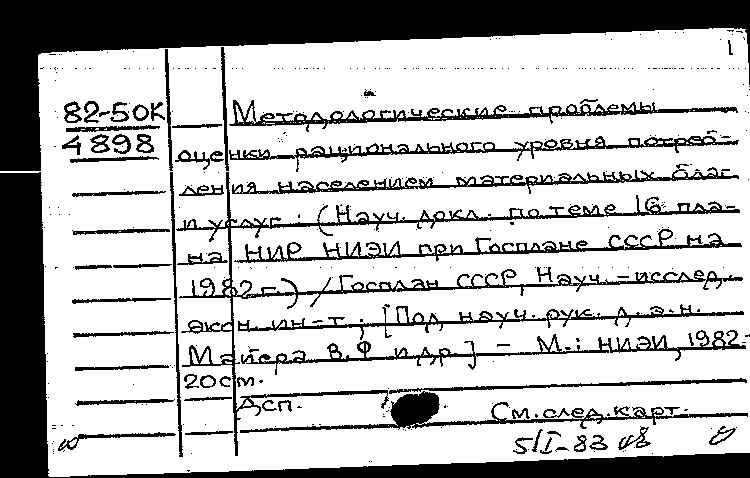 1
82-5ОК
4898
Методологические проблемы
оценки рационального уровня потреб-
ления населением материальных благ
и услуг : (Науч. докл. по теме 16 пла-
на НИР НИЭИ при Госплане СССР на
1982 г.) / Госплан СССР, Науч.-исслед.
экон. ин-т ; [Под науч. рук. д. э. н.
Майера В. Ф и др.] - М.: НИЭИ, 1982-
20 см.
Дсп.
См. след. карт.
5/I-83